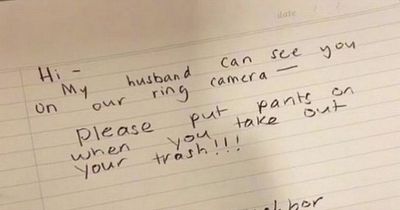 date
Hi -
My husband can see you
on our ring camera —
Please put pants on
when you take out
your trash!!!